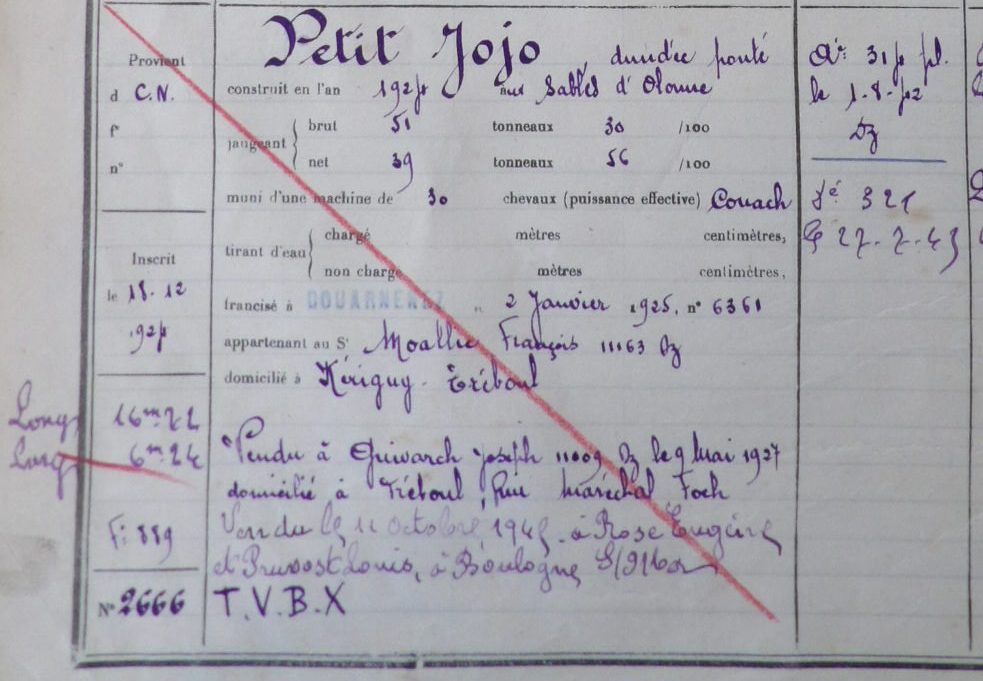 Provient
d C.N.
f°
n°
Inscrit
le 18. 12
1924
Long 16m22
Larg 6m24
Fi: 889
N° 2666
Petit Jojo, dundee ponté
construit en l'an 1924 aux Sables d'Olonne
jaugeant
brut 51 tonneaux 30 /100
net 39 tonneaux 56 /100
muni d'une machine de 30 chevaux (puissance effective) Couach
tirant d'eau
chargé mètres centimètres,
non chargé mètres centimètres,
francisé à DOUARNENEZ 2 Janvier 1925, n° 6361
appartenant au Sr Moallic François 11163 Dz
domicilié à Keriguy - Tréboul
Vendu à Grivarch Joseph 11009 Dz le 9 Mai 1927
domicilié à Tréboul, Rue Maréchal Foch
Vendu le 11 Octobre 1945 à Rose Eugène
et Pruvost Louis, à Boulogne S/Mer
T.V.B.X
314
le 1-8-42
Dz
321
27-7-43